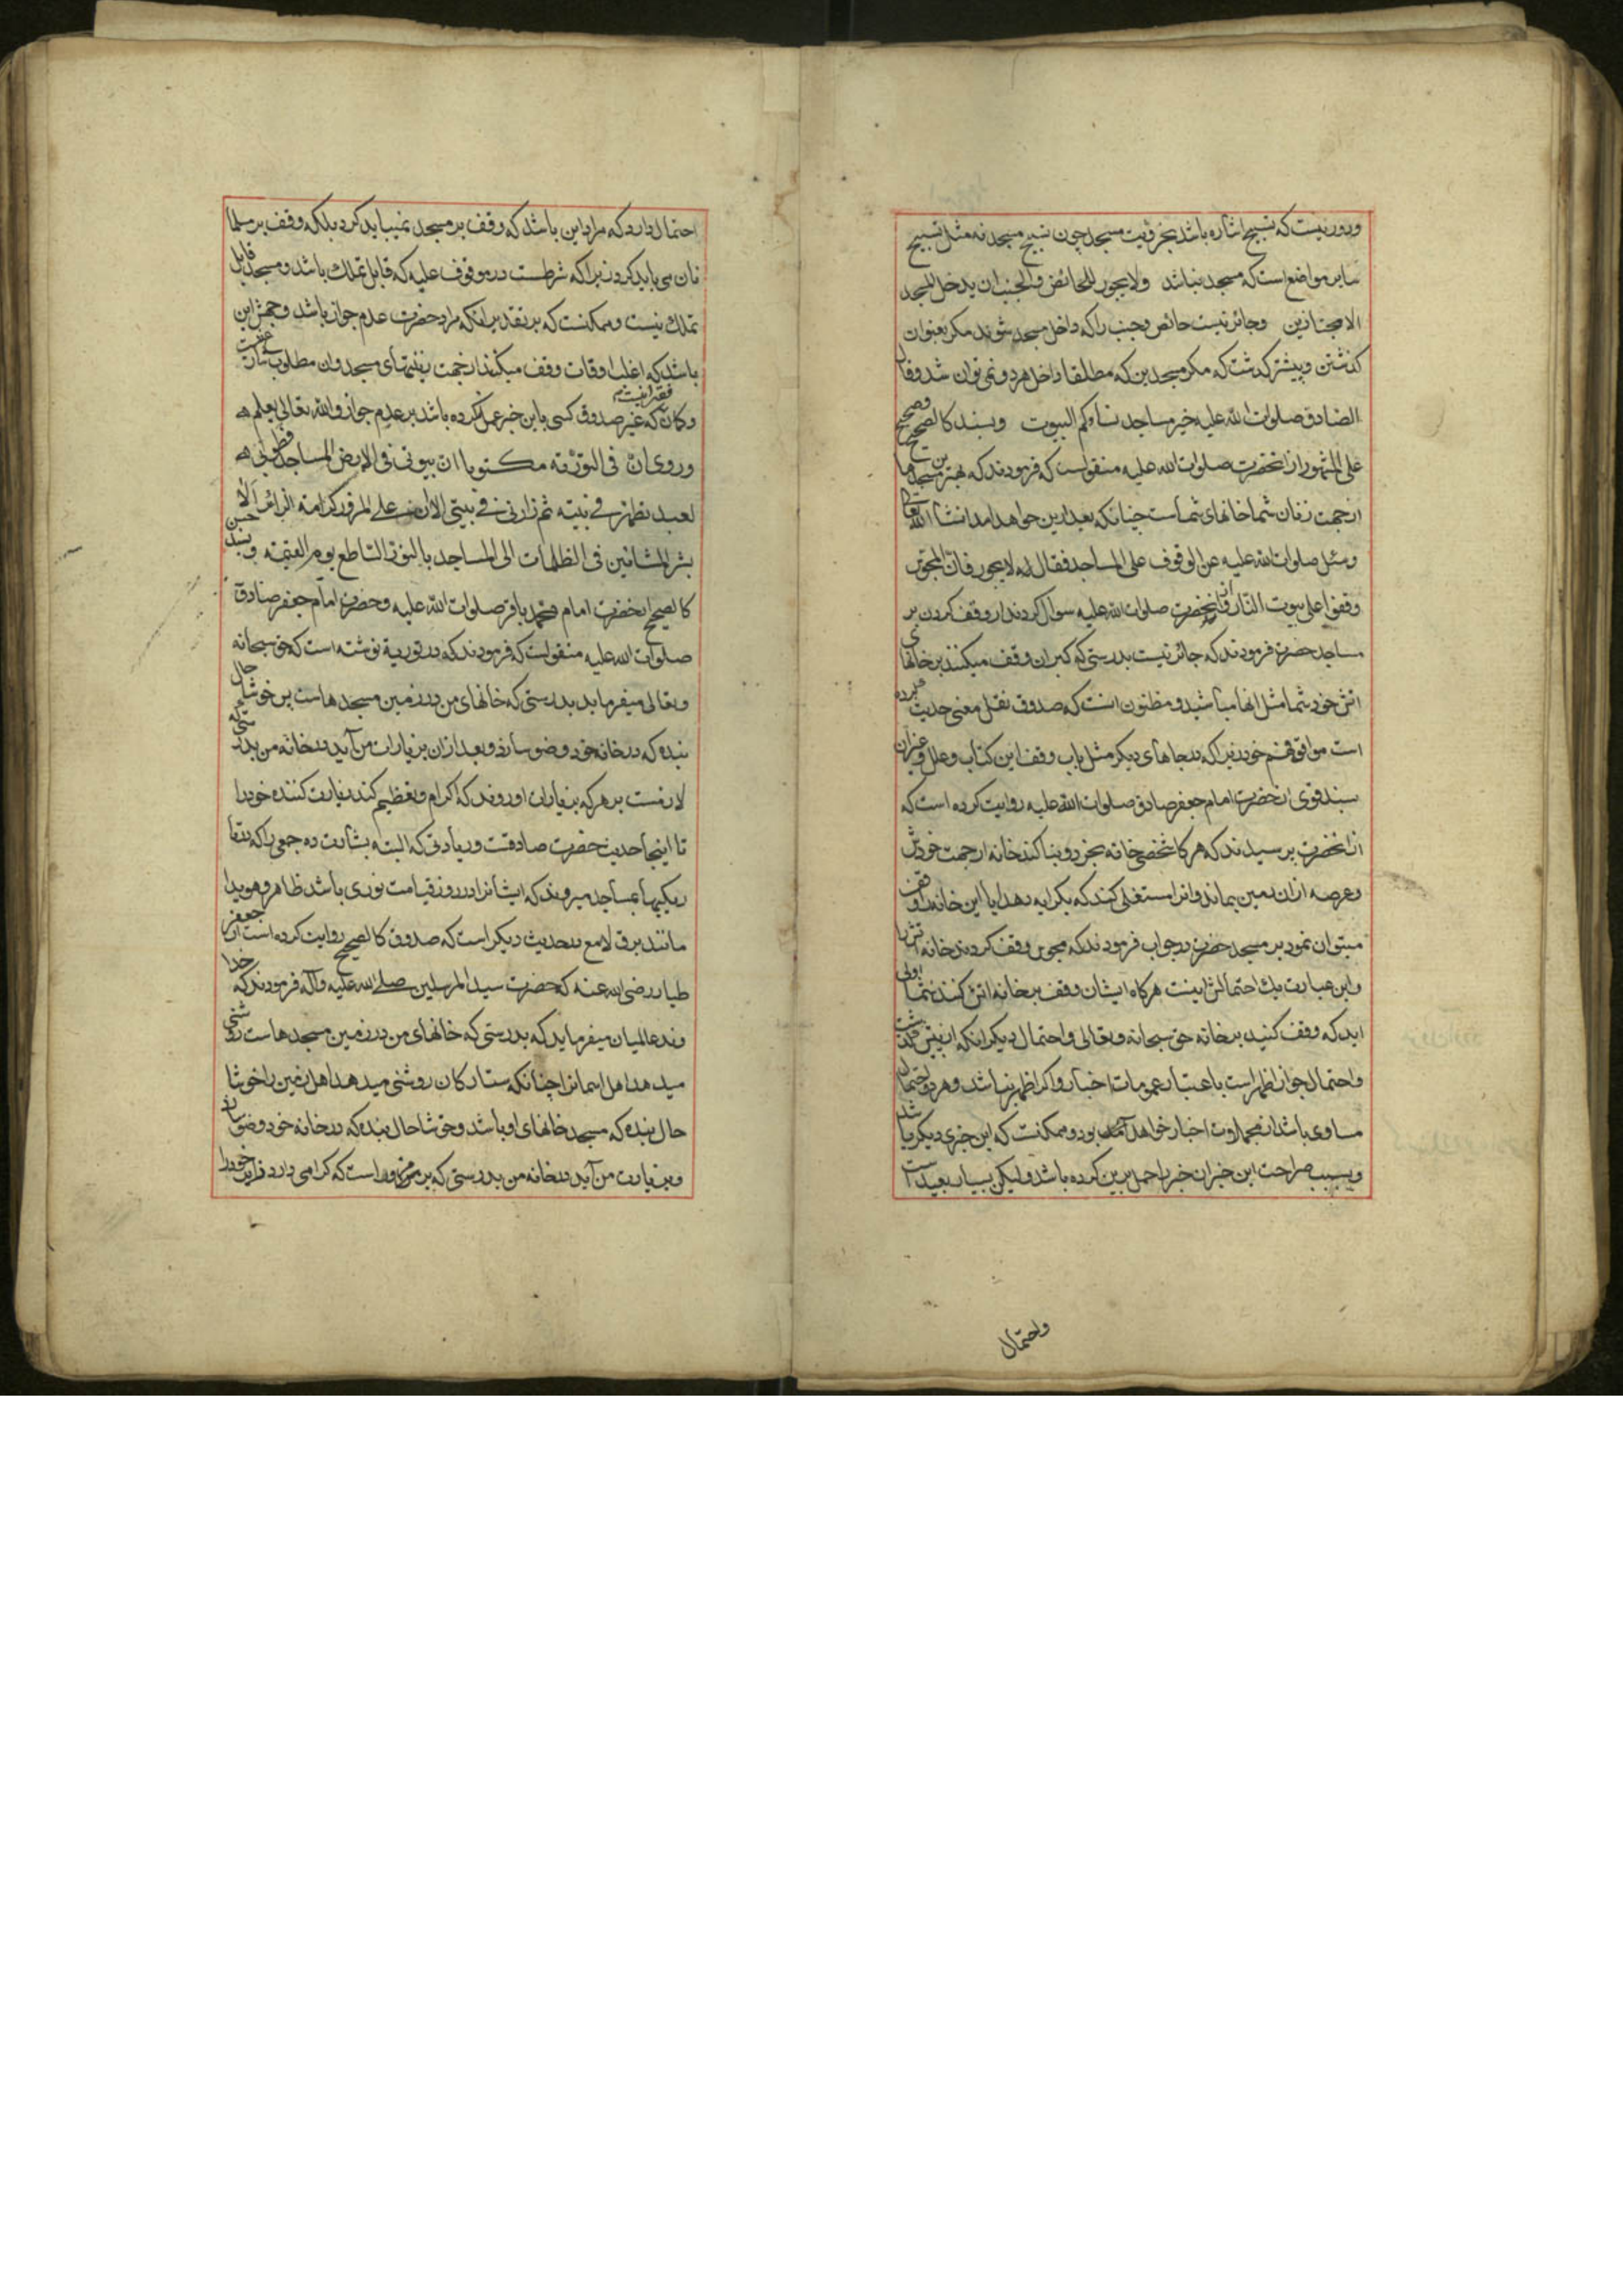 ودور نیست که تسبیح اشاره باشد بجزویت مسجد چون تسبیح مسجد نه مثل تسبیح
سایر مواضع است که مسجد نباشد ولا یجوز للحائض والجنب ان یدخل المسجد
الا مجتازین وجائز نیست حائض وجنب را که داخل مسجد شوند مکر بعنوان
کذشتن وپیشتر کذشت که مکر مسجدین که مطلقا داخل هر دو نمی توان شد وقال
الصادق صلوات الله علیه خیر مساجد نساؤکم البیوت وبسند کالصحیح وصحیح
علی المشهور از انحضرت صلوات الله علیه منقولست که فرمودند که بهترین مسجدها
از جهت زنان شما خانهای شماست چنانکه بعد ازین خواهد امد انشاء الله تعالی
وسئل صلوات الله علیه عن الوقوف علی المساجد فقال لا یجوز فان المجوس
وقفوا علی بیوت النار از انحضرت صلوات الله علیه سوال کردند از وقف کردن بر
مساجد حضرت فرمودند که جائز نیست بدرستی که کبران وقف میکنند بر خانهای
اتش خود شما مثل انها مباشید ومظنون انست که صدوق نقل معنی حدیث کرده
است موافق فهم خود زیرا که در جاهای دیکر مثل باب وقف این کتاب وعلل وغیر ان
بسند قوی از حضرت امام جعفر صادق صلوات الله علیه روایت کرده است که
از انحضرت پرسیدند که هر کاه شخصی خانه بخرد وبنا کند خانه از جهت خودش
وعرصه ازان زمین بماند وانرا مستغلی کند که بکرایه دهد ایا این خانه را وقف
میتوان نمود بر مسجد حضرت در جواب فرمودند که مجوس وقف کردند خانه اتش را
واین عبارت یک احتمالش اینست هرکاه ایشان وقف بر خانه اتش کنند شما اولی
اید که وقف کنید بر خانه حق سبحانه وتعالی واحتمال دیکر انکه از پیش کذشت
واحتمال جواز اظهر است باعتبار عمومات اخبار واکر اظهر نباشد وهر دو احتمال
مساوی باشد از مجملات اخبار خواهد بود وممکنست که این خبری دیکر باشد
وبسبب صراحت این خبر ان خبر را حمل برین کرده باشد ولیکن بسیار بعید است
واحتمال
احتمال دارد که مراد این باشد که وقف بر مسجد نمیباید کرد بلکه وقف بر مسلما
نان می باید کرد زیرا که شرطست در موقوف علیه که قابل تملک باشد ومسجد قابل
تملک نیست وممکنست که بر تقدیر انکه مراد حضرت عدم جواز باشد وجهش این
باشد که اغلب اوقات وقف میکنند از جهت زینتهای مسجد وان مطلوب شارع
وکان که غیر صدوق کسی باین خبر عمل نکرده باشد بر عدم جواز والله تعالی یعلم
وروی ان فی التوریة مکتوبا ان بیوتی فی الارض المساجد فطوبی
لعبد تطهر فی بیته ثم زارنی فی بیتی الا ان علی المزور کرامة الزائر الا
بشر المشائین فی الظلمات الی المساجد بالنور الساطع یوم القیمة وبسند حسن
کالصحیح از حضرت امام محمد باقر صلوات الله علیه وحضرت امام جعفر صادق
صلوات الله علیه منقولست که فرمودند که در توریة نوشته است که حق سبحانه
وتعالی میفرماید بدرستی که خانهای من در زمین مسجدهاست پس خوشا حال
بنده که در خانه خود وضو سازد وبعد ازان بزیارت من آید در خانه من بدرستی که
لازمست بر هر که بزیارت او روند که اکرام وتعظیم کند زیارت کننده خود را
تا اینجا حدیث حضرت صادقست وزیادتی که البته بشارت ده جمعی را که در تا
ریکیها بمساجد میروند که ایشانرا در روز قیامت نوری باشد ظاهر وهویدا
مانند برق لامع در حدیث دیکر است که صدوق کالصحیح روایت کرده است از جعفر
طیار رضی الله عنه که حضرت سید المرسلین صلی الله علیه وآله فرمودند که خدا
وند عالمیان میفرماید که بدرستی که خانهای من در زمین مسجدهاست روشنی
میدهد اهل اسمانرا چنانکه ستارکان روشنی میدهد اهل زمین را خوشا
حال بنده که مسجد خانهای او باشد وخوشا حال بنده که در خانه خود وضو سازد
وبزیارت من آید در خانه من بدرستی که بر مزور است که کرامی دارد زایر خود را